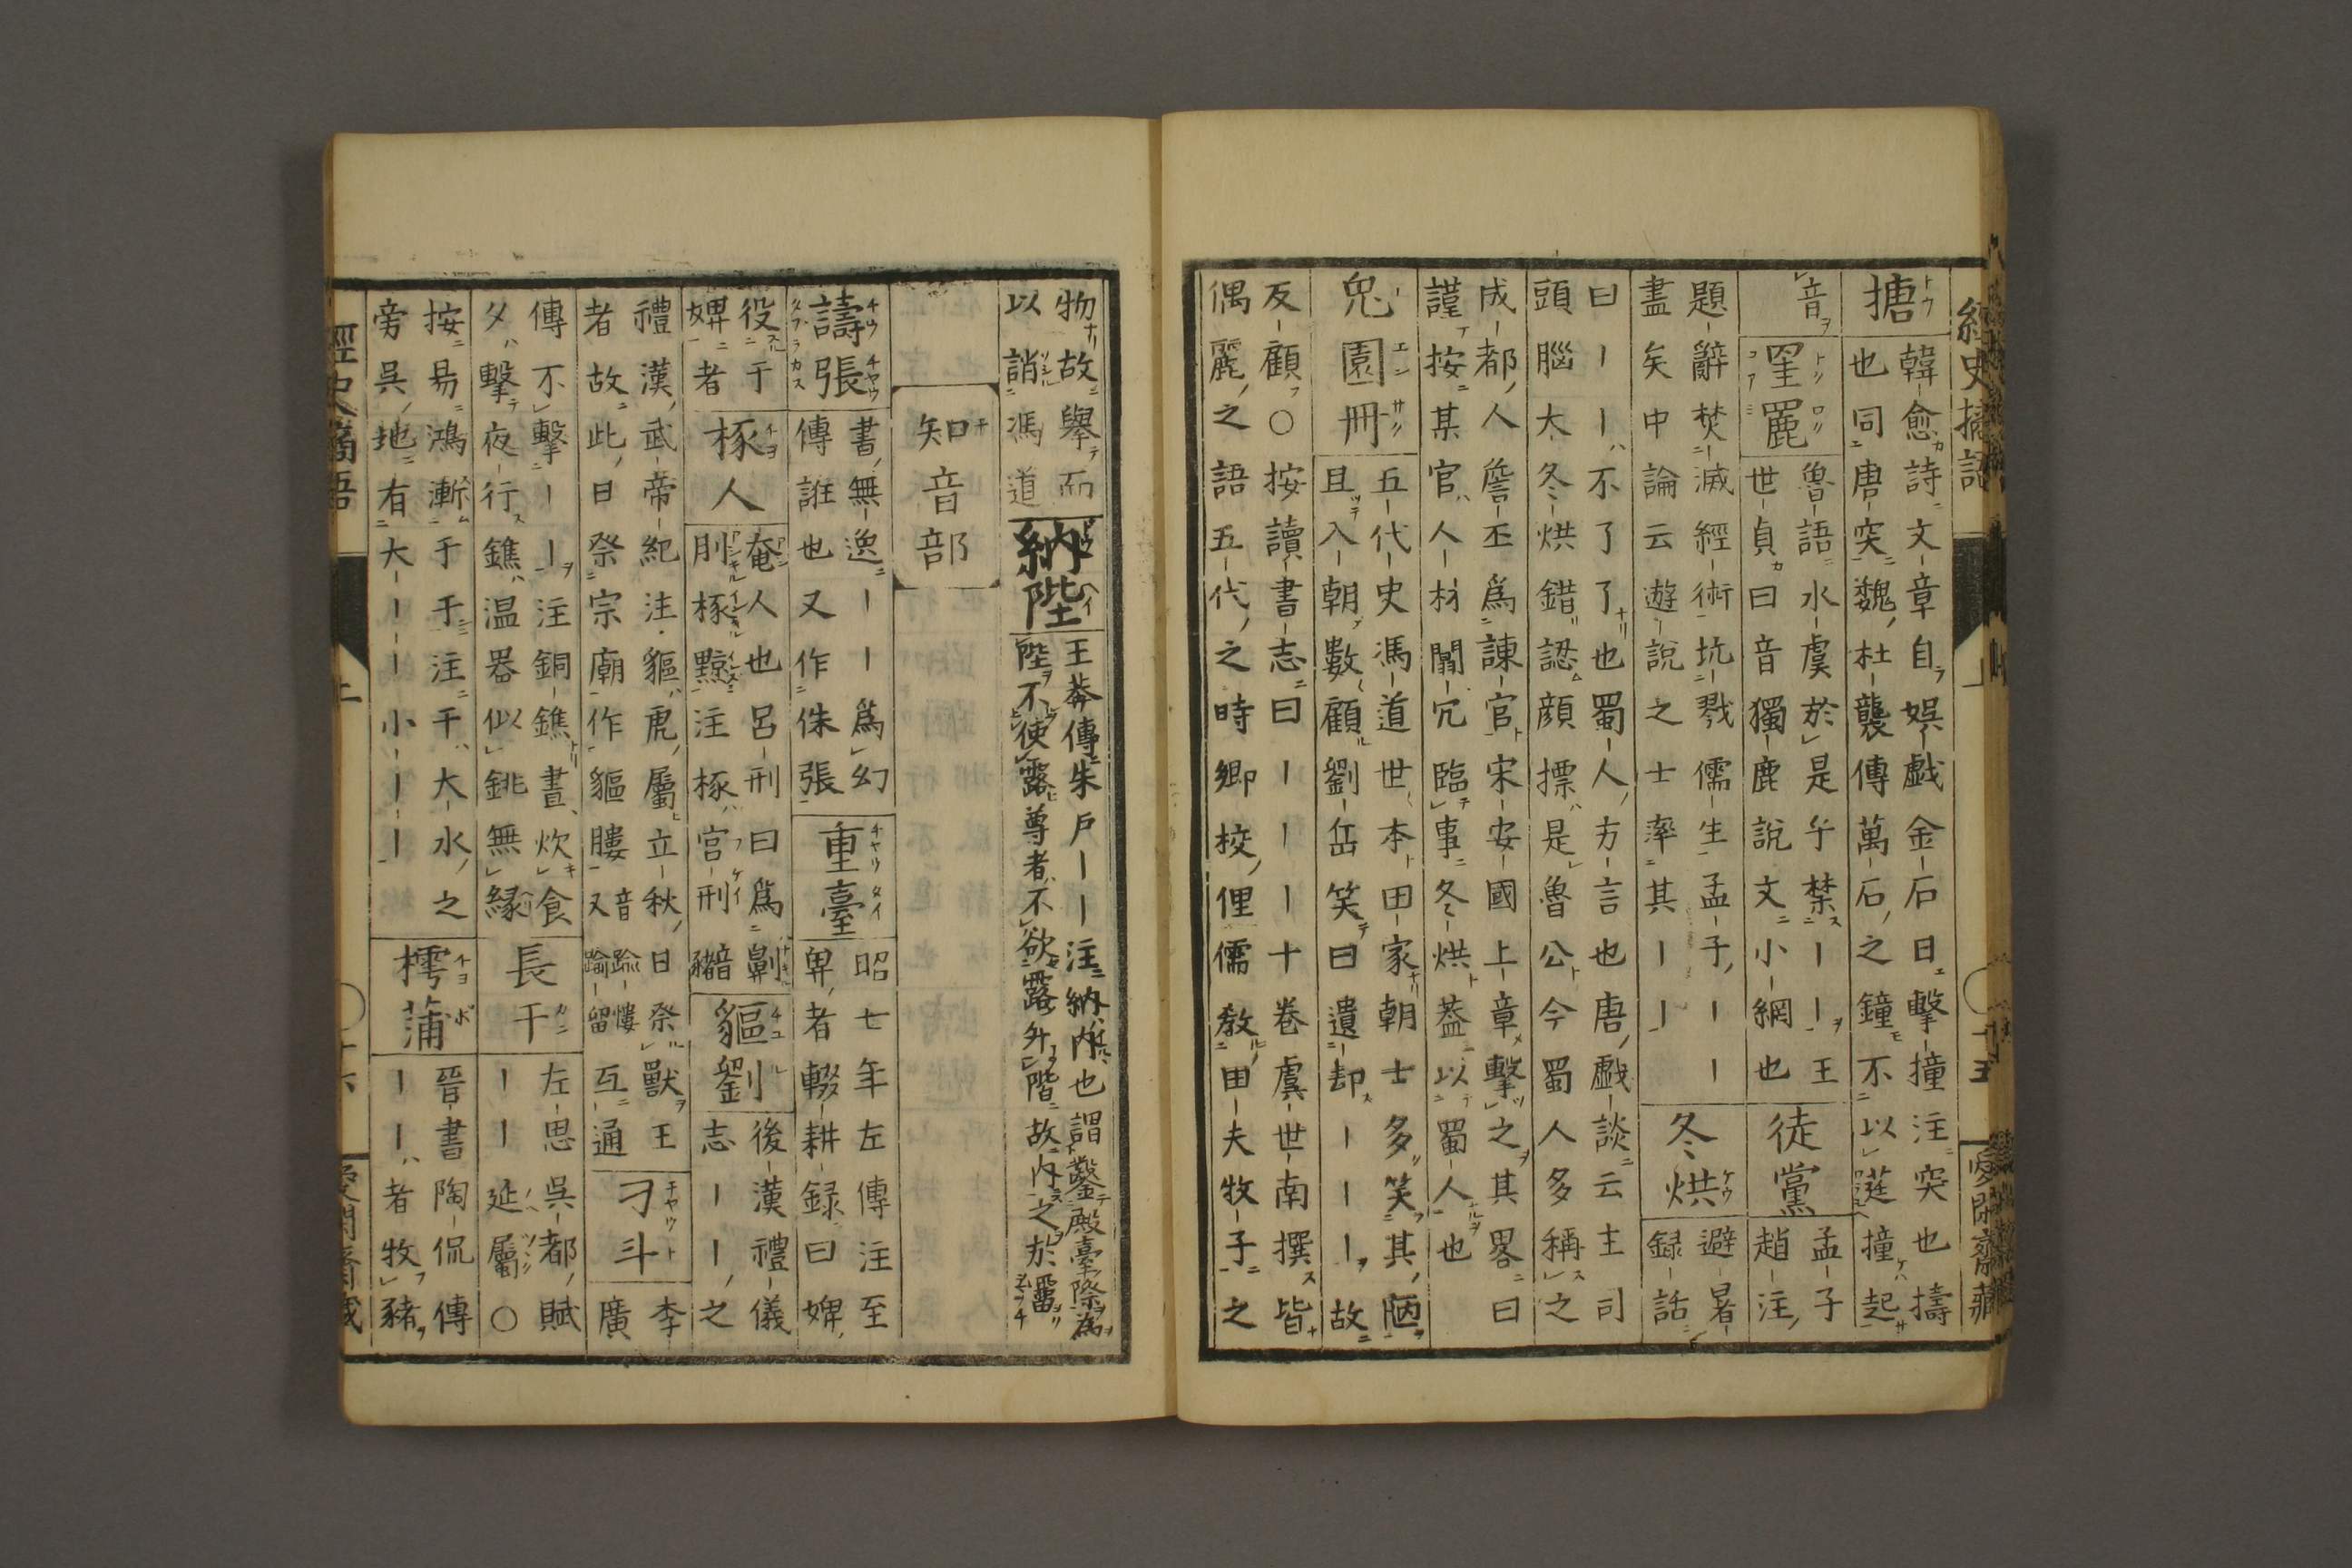 經史摘語
上
十五
愛閑齋藏
搪
韓愈詩文章自娯戯金石日擊撞注突也擣
也同唐突魏杜襲傳萬石之鐘不以莛撞起
音
罜䍡
魯語水虞於是乎禁ーー王
世貞曰音獨鹿說文小網也
徒黨
孟子
趙注
題辭焚滅經術坑戮儒生孟子ーー
盡矣中論云遊說之士率其ーー
冬烘
避暑
録話
曰ーー不了了也蜀人方言也唐戯談云主司
頭腦太冬烘錯認顔摽是魯公今蜀人多稱之
成都人詹丕爲諫官宋安國上章擊之其畧曰
謹按某官人材闒冗臨事冬烘蓋以蜀人也
兎園冊
五代史馮道世本田家朝士多笑其陋
旦入朝數顧劉岳笑曰遺却ーーー故
反顧○按讀書志曰ーーー十卷虞世南撰皆
偶麗之語五代之時鄉校俚儒教田夫牧子之
物故舉而
以誚馮道
納陛
王莽傳朱戶ーー注納内也謂鑿殿臺際爲
陛不使露尊者不欲露升階故内之於霤
知音部
譸張
書無逸ーー爲幻
傳誑也又作侏張
重臺
昭七年左傳注至
卑者輟耕録曰婢
役于
婢者
椓人
奄人也呂刑曰爲劓
刖椓黥注椓宮刑
貙劉
後漢禮儀
志ーー之
禮漢武帝紀注貙虎屬立秋日祭獸王
者故此日祭宗廟作貙膢又音踰留互通
刁斗
李
廣
傳不擊ーー注銅鐎晝炊食
夕擊夜行鐎温器似銚無縁
長干
左思吳都賦
ーー延屬○
按易鴻漸于干注干大水之
旁吳地有大ーー小ーー
樗蒲
晉書陶侃傳
ーー者牧豬
經史摘語
上
十六
愛閑齋藏